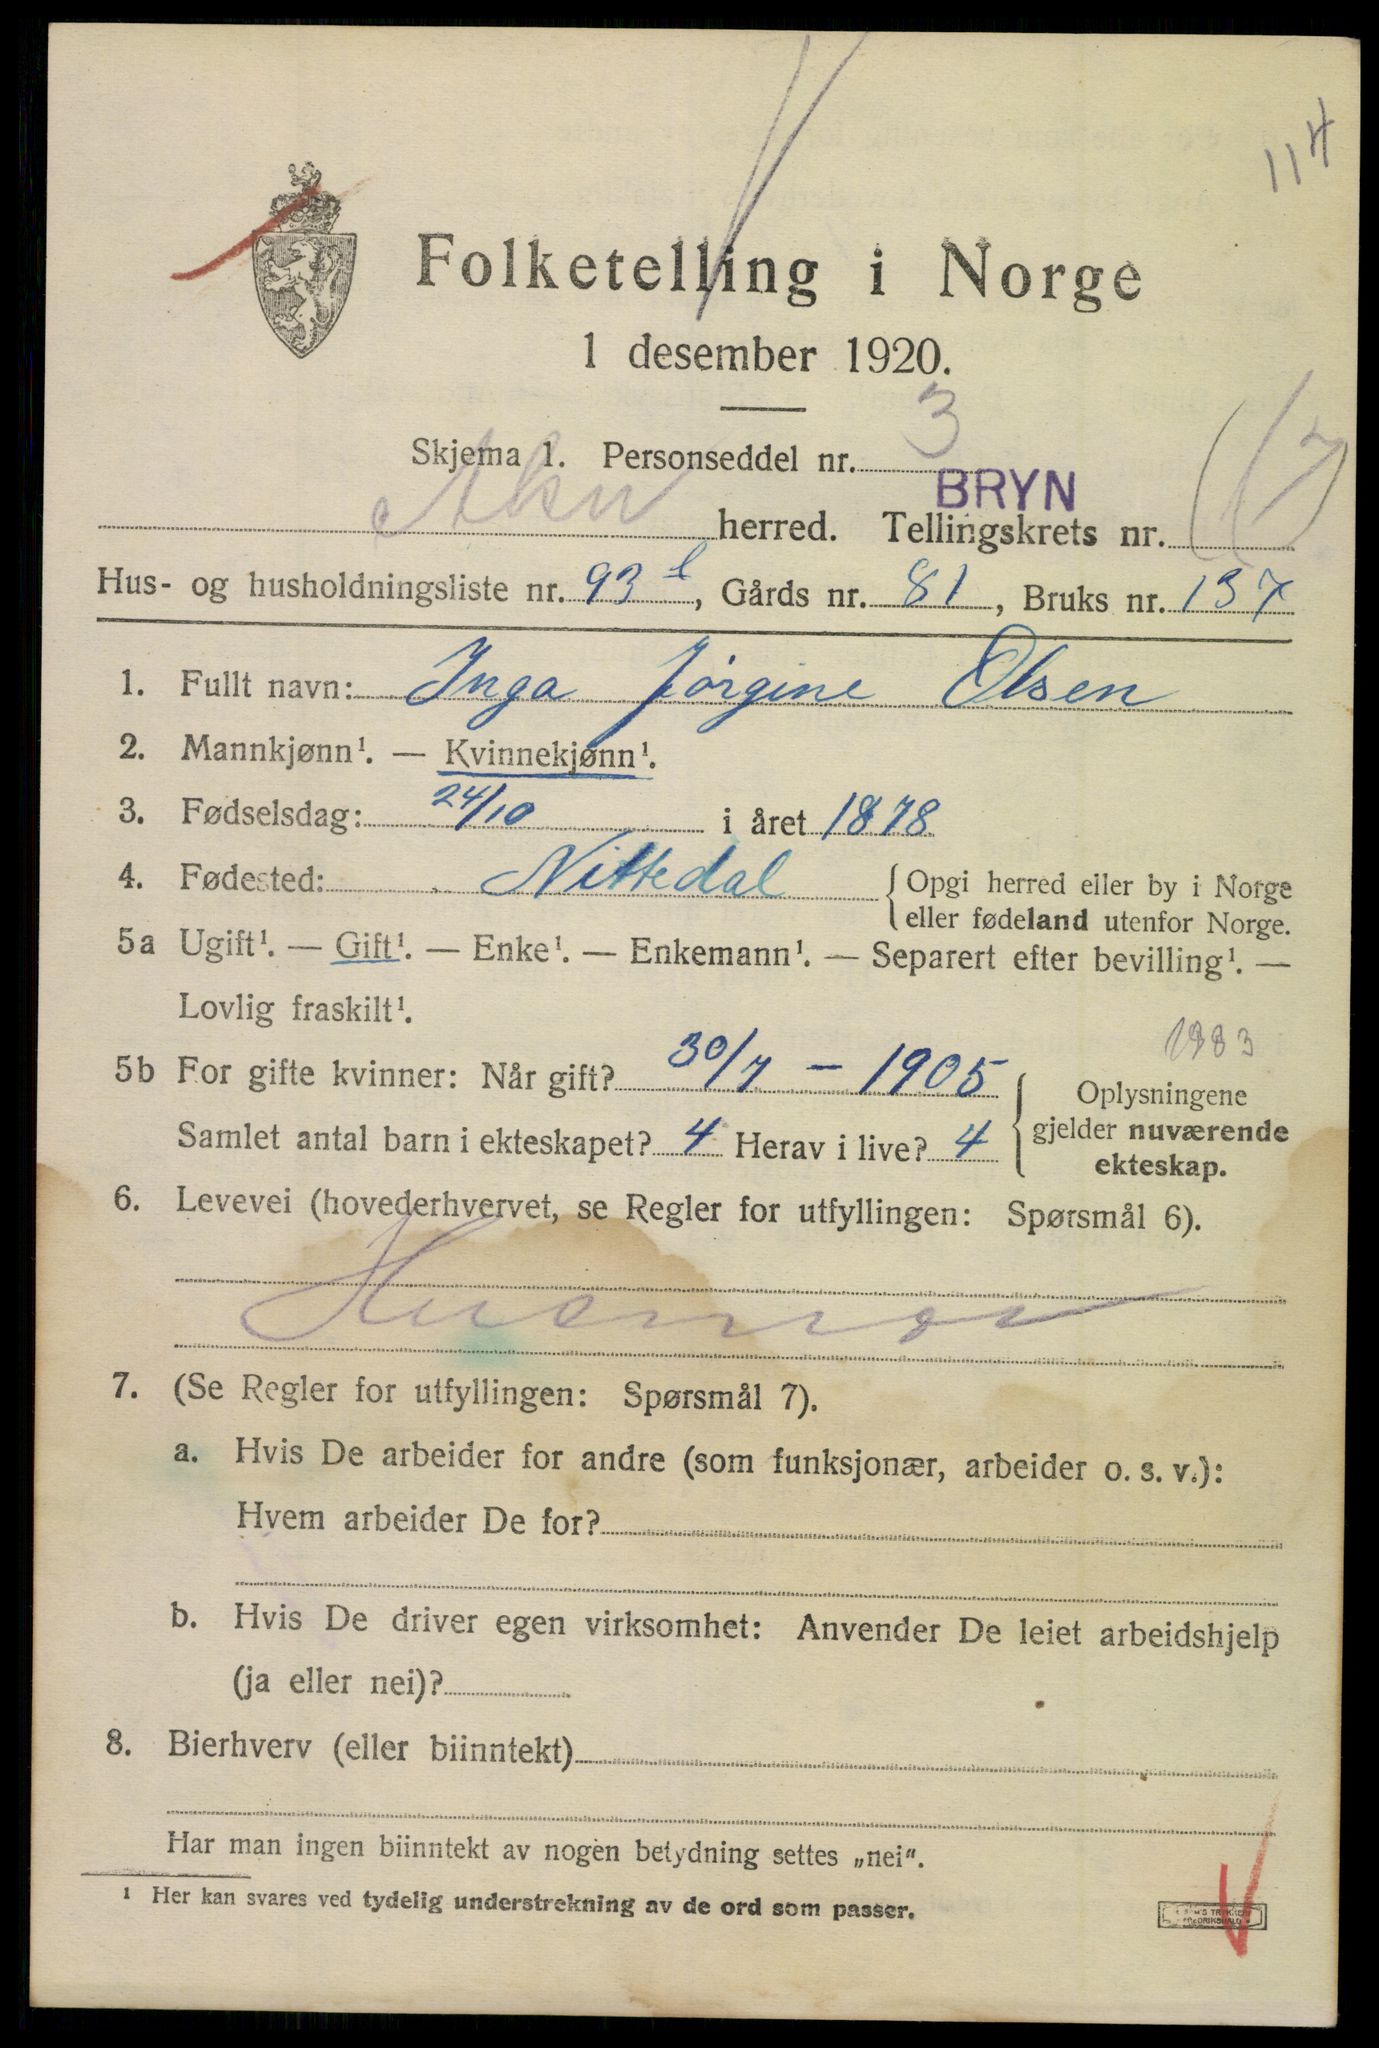 114
Folketelling i Norge
1 desember 1920.
Skjema 1. Personseddel nr. 3
BRYN
Aker herred. Tellingskrets nr. (17)
Hus- og husholdningsliste nr. 93 b, Gårds nr. 81, Bruks nr. 137
1. Fullt navn: Inga Jørgine Olsen
2. Mannkjønn¹. — Kvinnekjønn¹.
3. Fødselsdag: 24/10 i året 1878
4. Fødested: Nittedal {Opgi herred eller by i Norge
eller fødeland utenfor Norge.
5a Ugift¹. — Gift¹. — Enke¹. — Enkemann¹. — Separert efter bevilling¹. —
Lovlig fraskilt¹.
1983
5b For gifte kvinner: Når gift? 30/7 – 1905
Samlet antal barn i ekteskapet? 4 Herav i live? 4
Oplysningene
gjelder nuværende
ekteskap.
6. Levevei (hovederhvervet, se Regler for utfyllingen: Spørsmål 6).
Husmor
7. (Se Regler for utfyllingen: Spørsmål 7).
a. Hvis De arbeider for andre (som funksjonær, arbeider o. s. v.):
Hvem arbeider De for?
b. Hvis De driver egen virksomhet: Anvender De leiet arbeidshjelp
(ja eller nei)?
8. Bierhverv (eller biinntekt)
Har man ingen biinntekt av nogen betydning settes „nei".
¹ Her kan svares ved tydelig understrekning av de ord som passer.